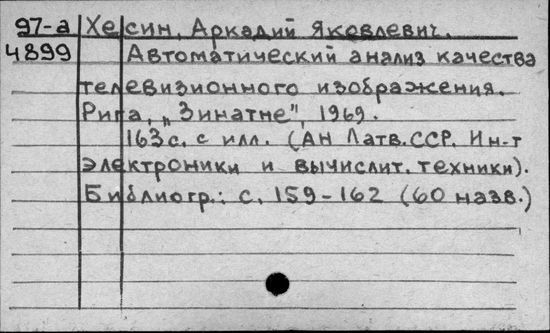 97-а Хесин, Аркадий Яковлевич.
4899 Автоматический анализ качества
телевизионного изображения.
Рига, „Зинатне", 1969.
163 с. с илл. (АН Латв.ССР. Ин-т
электроники и вычислит. техники).
Библиогр.: с. 159-162 (60 назв.)